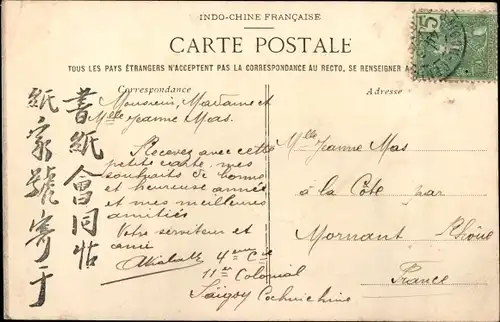 INDO-CHINE FRANÇAISE
CARTE POSTALE
TOUS LES PAYS ÉTRANGERS N'ACCEPTENT PAS LA CORRESPONDANCE AU RECTO, SE RENSEIGNER A
Correspondance
Adresse
5
Monsieur, Madame et
Mlle Jeanne Mas.
Recevez avec cette
petite carte, mes
souhaits de bonne
et heureuse année
et mes meilleures
amitiés
Votre serviteur et
ami
4eme Cie
11er Colonial
Saïgon Cochinchine
Mlle Jeanne Mas
à la Côte par
Mornant Rhône
France
書紙會同帖
紙家號寄于